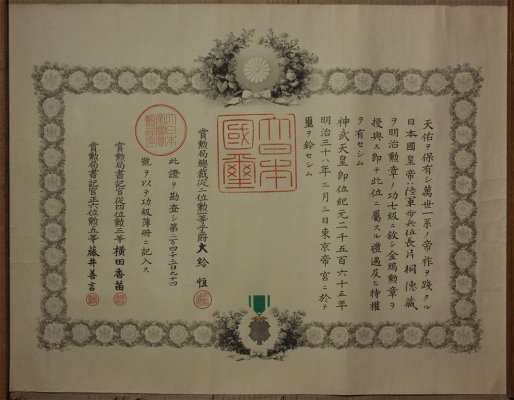 天佑ヲ保有シ萬世一系ノ帝祚ヲ踐タル
日本國皇帝ハ陸軍歩兵伍長片桐德藏
ヲ明治勲章ノ功七級ニ敘シ金鵄勲章ヲ
授與ス即チ此位ニ屬スル禮遇及ヒ特權
ヲ有セシム
神武天皇即位紀元二千五百六十五年
明治三十八年二月三日東京帝宮ニ於テ
璽ヲ鈐セシム
大日本國璽
賞勲局總裁從二位勲一等子爵大給恒
此證ヲ勘査シ第
號ヲ以テ功級簿冊ニ記入ス
賞勲局書記官從四位勲三等横田香苗
賞勲局書記官正六位勲五等藤井善言